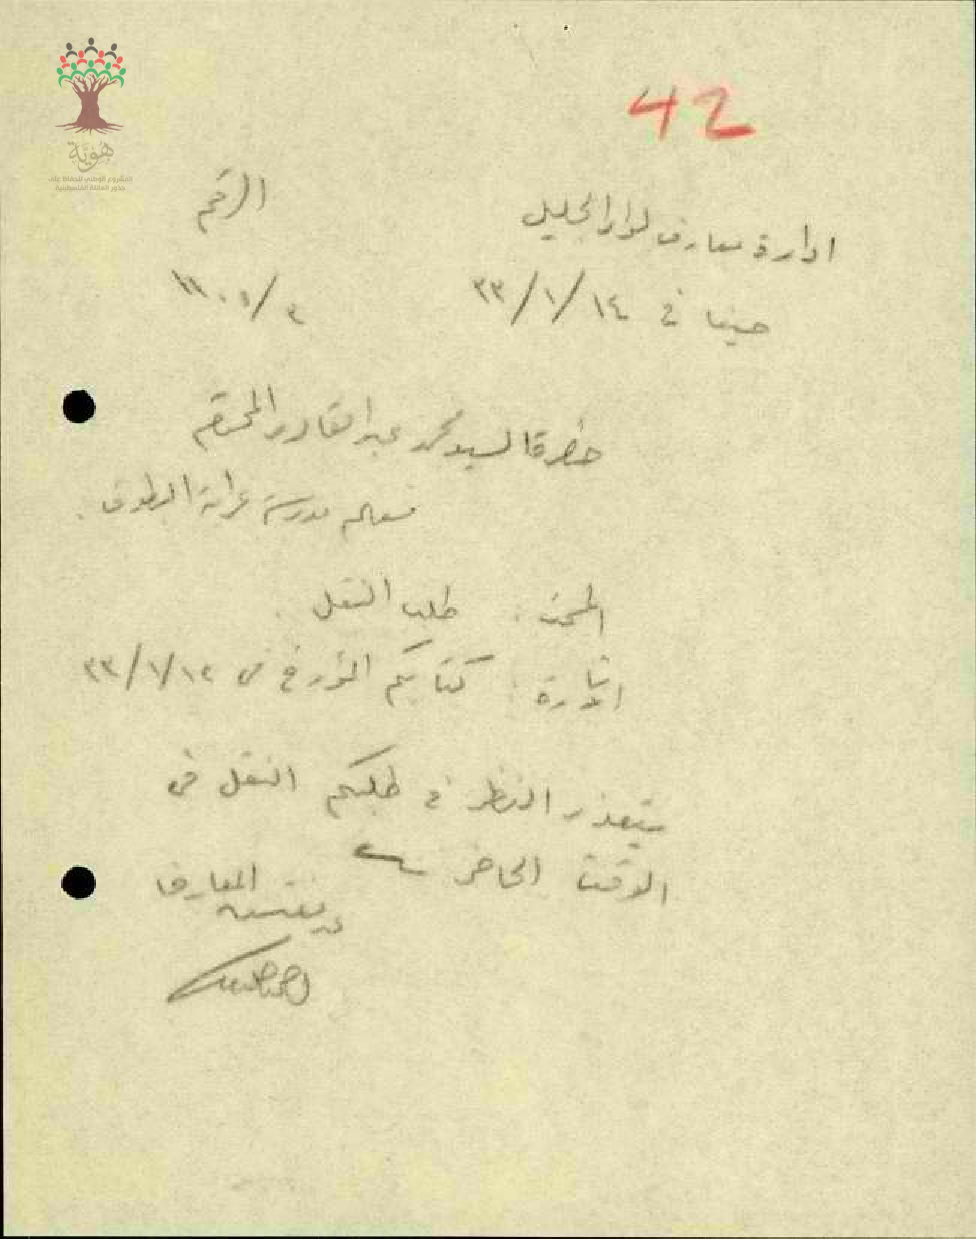 42
هوية
المشروع الوطني للحفاظ على
جذور العائلة الفلسطينية
ادارة معارف لواء الجليل
الرقم
حيفا في ١٤/١/٣٣
٣/١١٠٥
حضرة السيد محمد عبد القادر المحترم
معلم مدرسة عرابة البطوف
المبحث : طلب النقل .
الاشارة : كتابكم المؤرخ في ١٢/١/٣٣
يتعذر النظر في طلبكم النقل في
الوقت الحاضر
مفتش المعارف